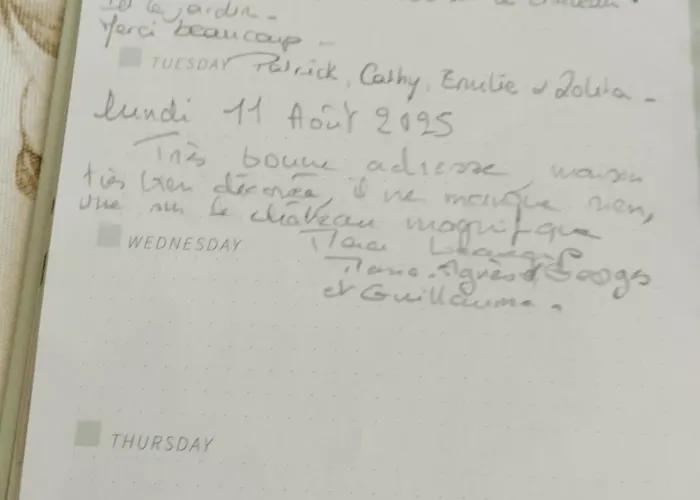 le jardin.
Merci beaucoup -
TUESDAY Patrick, Cathy, Emilie et Lolita -
lundi 11 Août 2025
Très bonne adresse maison
très bien décorée, il ne manque rien,
vue sur le château magnifique
WEDNESDAY
Marie-Agnès Georges
et Guillaume.
THURSDAY